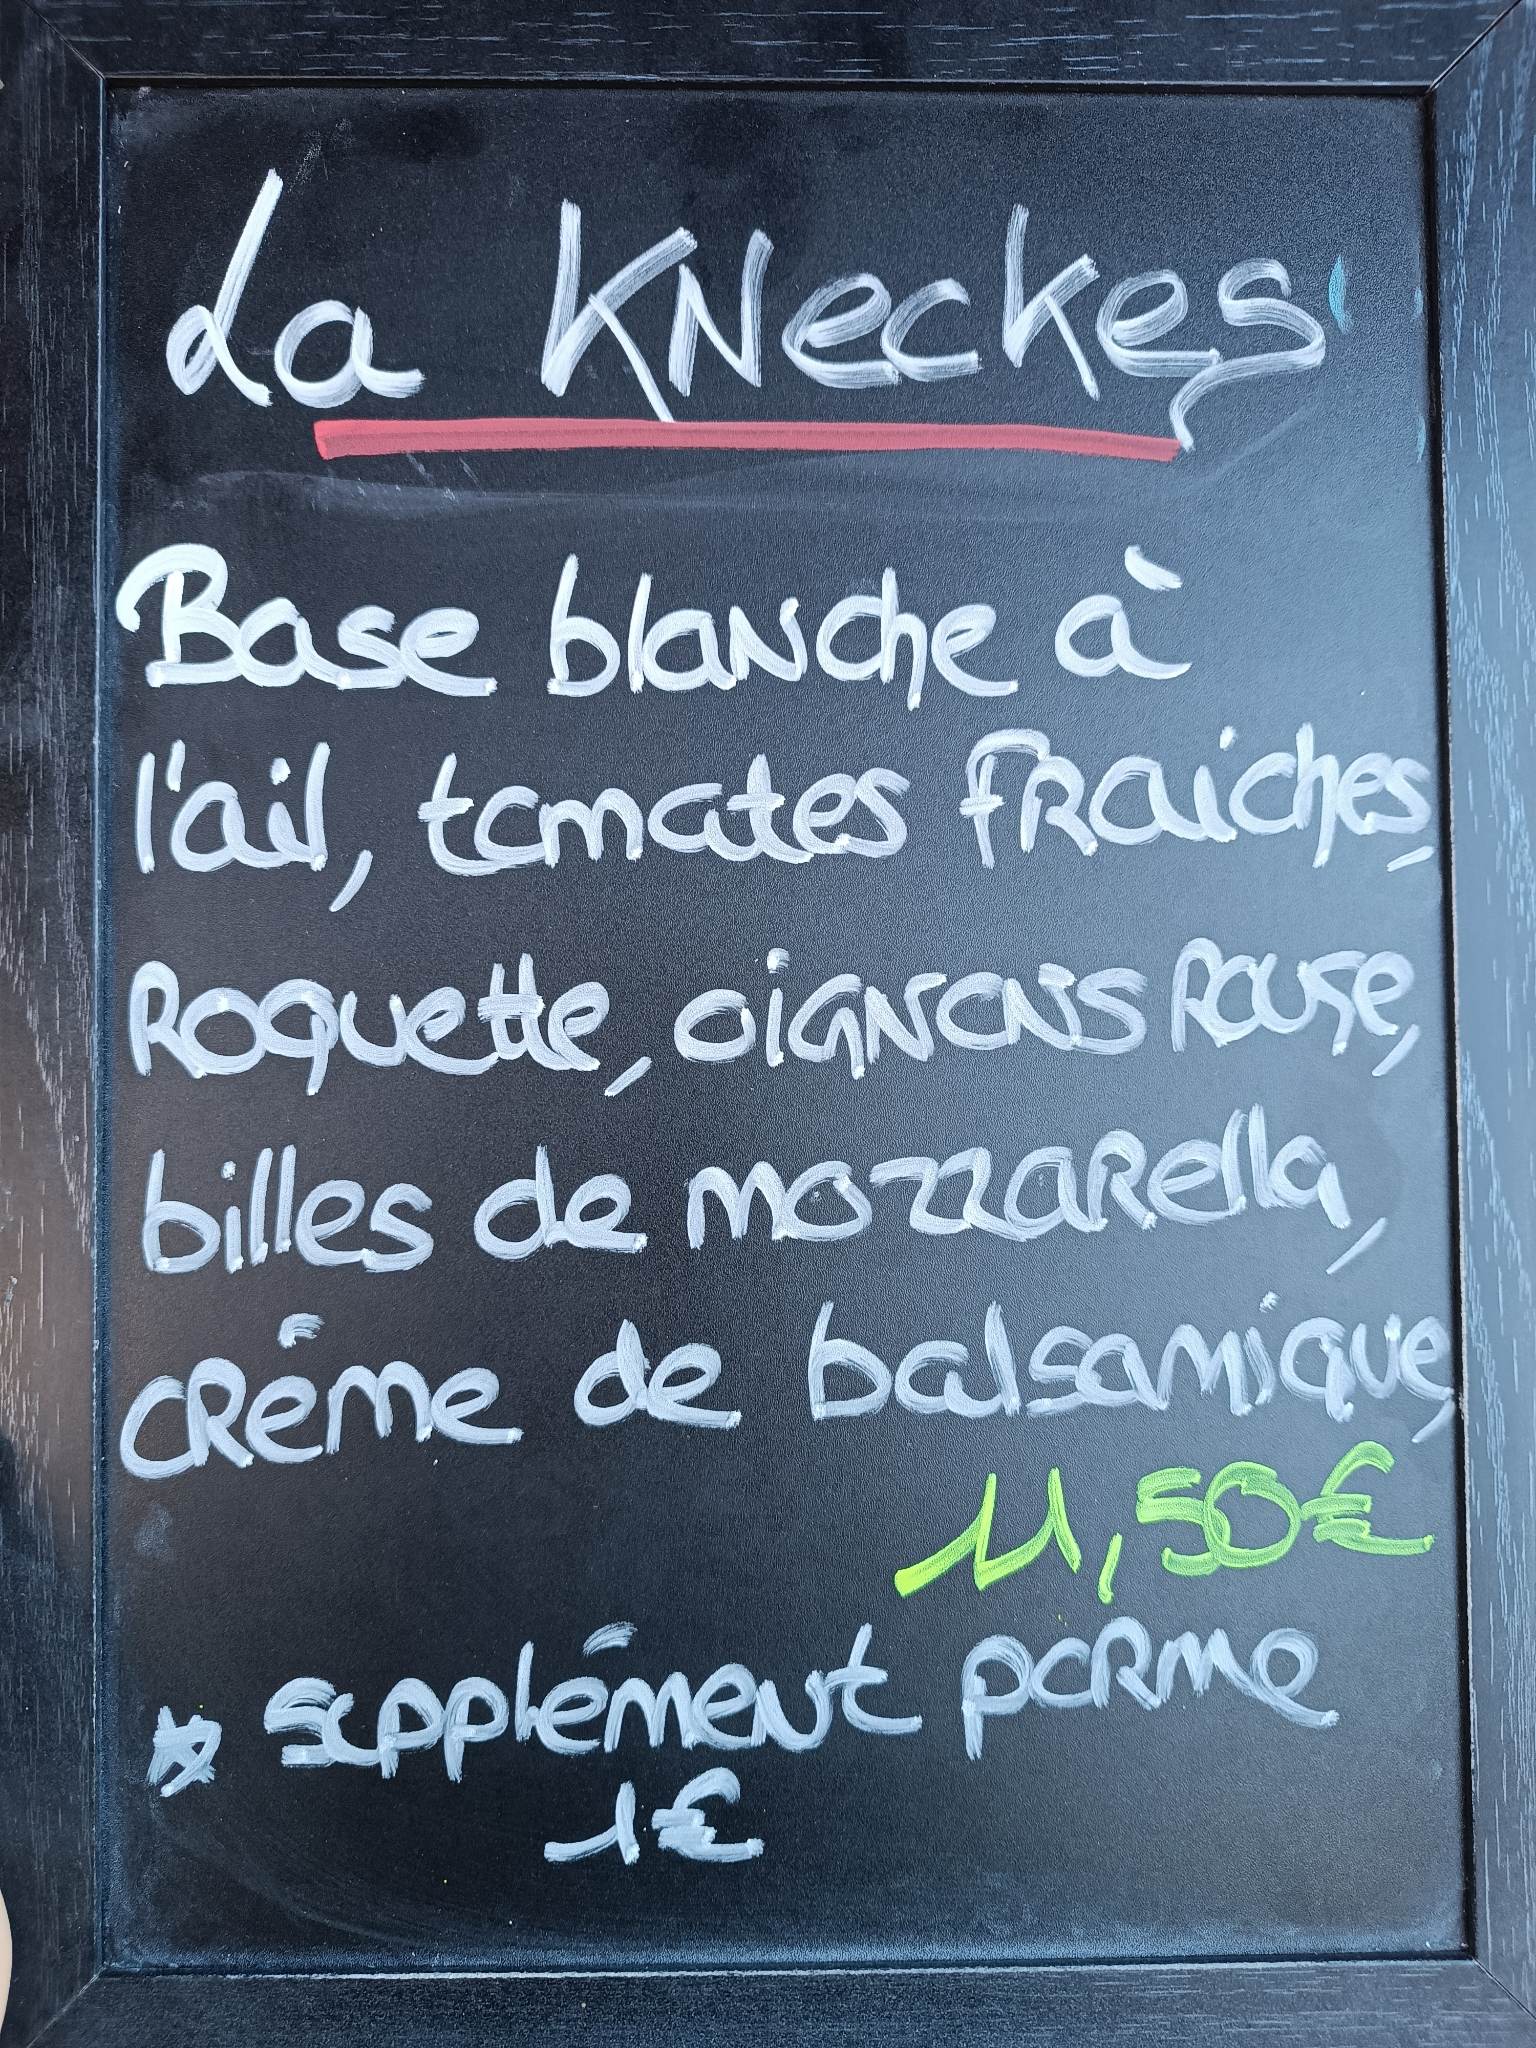 La KNeckes
Base blanche à
l'ail, tomates fraiches,
Roquette, oignons Rouge,
billes de mozzarella,
crème de balsamique,
11,50€
* supplément parme
1€